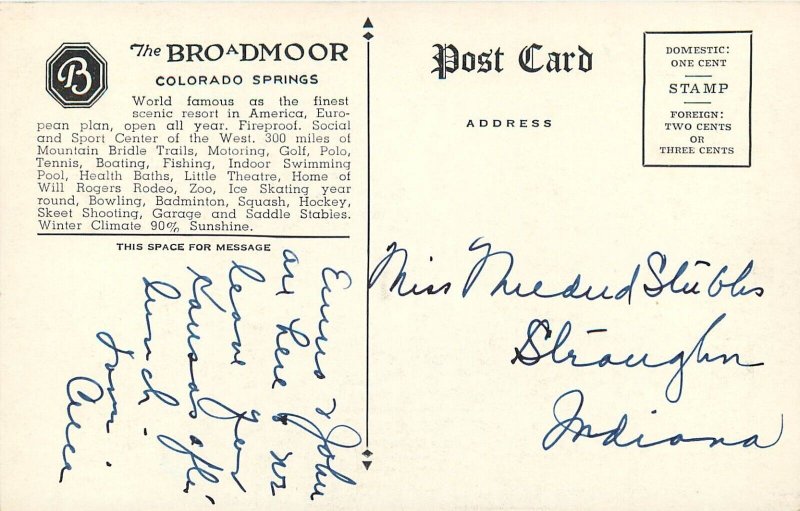 The BROADMOOR
COLORADO SPRINGS
World famous as the finest
scenic resort in America, Euro-
pean plan, open all year. Fireproof. Social
and Sport Center of the West. 300 miles of
Mountain Bridle Trails, Motoring, Golf, Polo,
Tennis, Boating, Fishing, Indoor Swimming
Pool, Health Baths, Little Theatre, Home of
Will Rogers Rodeo, Zoo, Ice Skating year
round, Bowling, Badminton, Squash, Hockey,
Skeet Shooting, Garage and Saddle Stables.
Winter Climate 90% Sunshine.
THIS SPACE FOR MESSAGE
& John
are here &
leave for
Kansas after
lunch
B
Post Card
ADDRESS
DOMESTIC:
ONE CENT
STAMP
FOREIGN:
TWO CENTS
OR
THREE CENTS
Miss Mildred Stubbs
Straughn
Indiana